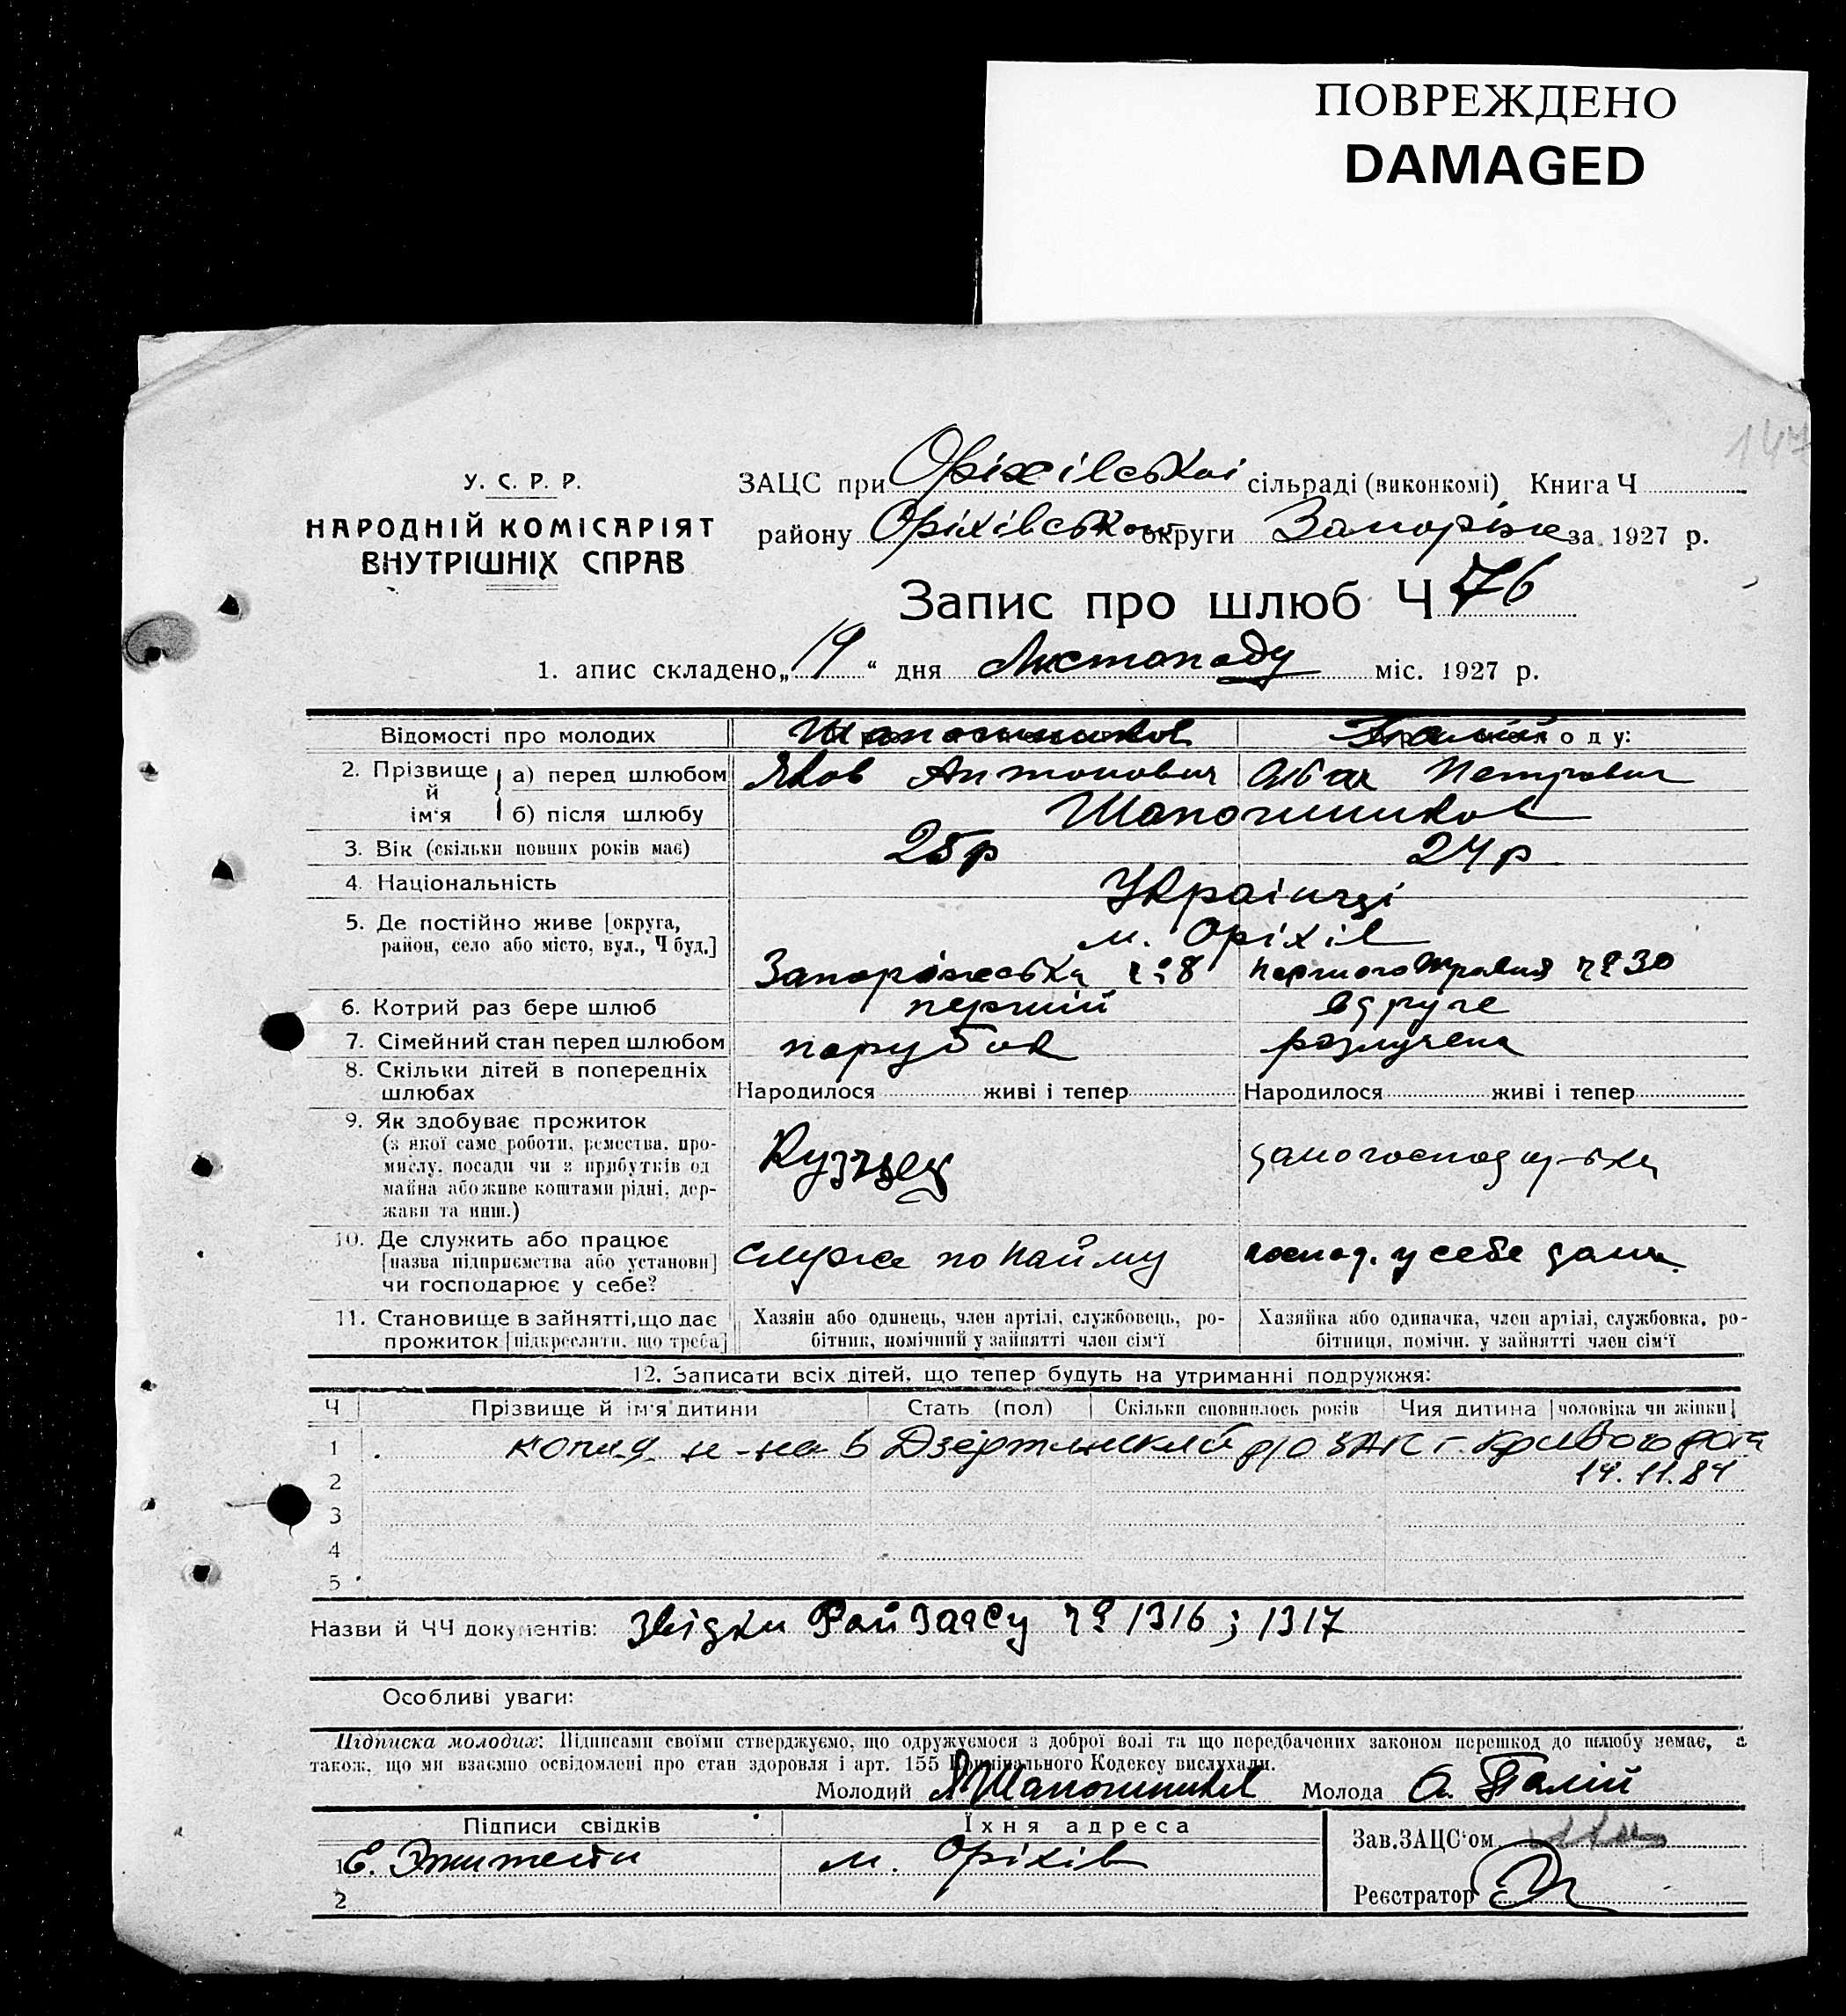 ПОВРЕЖДЕНО
DAMAGED
У. С. Р. Р.
НАРОДНІЙ КОМІСАРІЯТ
ВНУТРІШНІХ СПРАВ
ЗАЦС при Оріхівській сільраді (виконкомі) Книга Ч
району Оріхівськ округи Запоріж за 1927 р.
Запис про шлюб Ч 76
1. апис складено „19“ дня Листопаду міс. 1927 р.
Відомості про молодих Шапошников Палій оду:
2. Прізвище й ім'я а) перед шлюбом Яков Антонович Петровна
б) після шлюбу Шапошников
3. Вік (скільки повних років має) 25 р 24 р
4. Національність Українці
5. Де постійно живе [округа, м. Оріхів
район, село або місто, вул., Ч буд.] Запоріжська ч. 8 Першого Травня ч. 30
6. Котрий раз бере шлюб перший вдруге
7. Сімейний стан перед шлюбом парубок разлучена
8. Скільки дітей в попередніх
шлюбах Народилося живі і тепер Народилося живі і тепер
9. Як здобуває прожиток
(з якої саме роботи, ремества, про-
мислу, посади чи з прибутків од
майна або живе коштами рідні, дер-
жави та инш.) Кузнец
10. Де служить або працює
[назва підприємства або установи] служе по найму господ. у себе дома
чи господарює у себе?
11. Становище в зайнятті, що дає Хазяїн або одинець, член артілі, службовець, ро- Хазяйка або одиначка, член артілі, службовка, ро-
прожиток [підкреслити, що треба] бітник, помічний у зайнятті член сім'ї бітниця, помічн. у зайнятті член сім'ї
12. Записати всіх дітей, що тепер будуть на утриманні подружжя:
Ч Прізвище й ім'я дитини Стать (пол) Скільки сповнилось років Чия дитина [чоловіка чи жінки]
1 копия н-на в Дзержинский р/о ЗАГС г. Кривого Рога
2 14.11.84
3
4
5
Назви й ЧЧ документів: Звідки РайЗАГСу ч. 1316; 1317
Особливі уваги:
Підписка молодих: Підписами своїми стверджуємо, що одружуємося з доброї волі та що передбачених законом перешкод до шлюбу немає, а
також, що ми взаємно освідомлені про стан здоровля і арт. 155 Кримінального Кодексу вислухали.
Молодий Я Шапошников Молода А. Палій
Підписи свідків Їхня адреса
1 Е. м. Оріхів
2
Зав. ЗАЦС'ом
Реєстратор